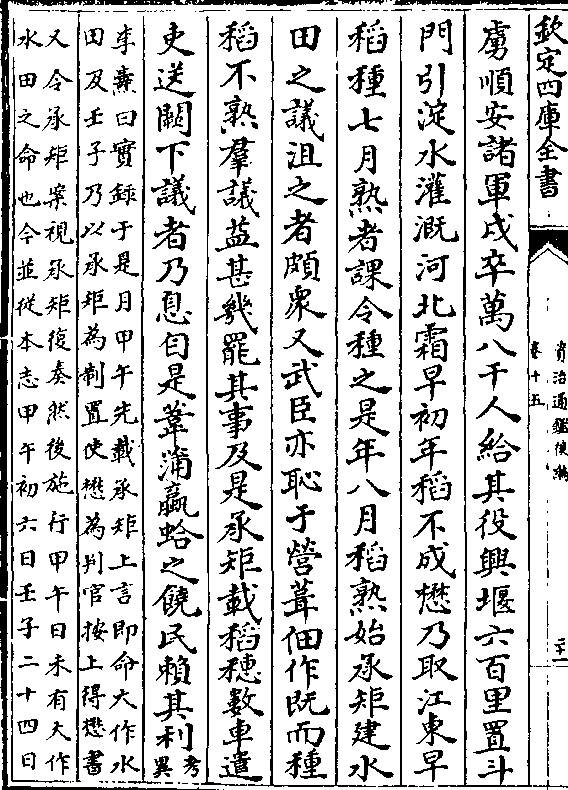 欽定四庫全書
資治通鑑後編
卷十五
虜順安諸軍戍卒萬八千人給其役興堰六百里置斗
門引淀水灌溉河北霜早初年稻不成懋乃取江東早
稻種七月熟者課令種之是年八月稻熟始承矩建水
田之議沮之者頗衆又武臣亦恥于營葺佃作既而種
稻不熟羣議益甚幾罷其事及是承矩載稻穗數車遣
吏送闕下議者乃息自是葦蒲蠃蛤之饒民賴其利考
異
李燾曰實錄于是月甲午先載承矩上言即命大作水
田及壬子乃以承矩為制置使懋為判官按上得懋書
又令承矩案視承矩復奏然後施行甲午日未有大作
水田之命也今並從本志甲午初六日壬子二十四日